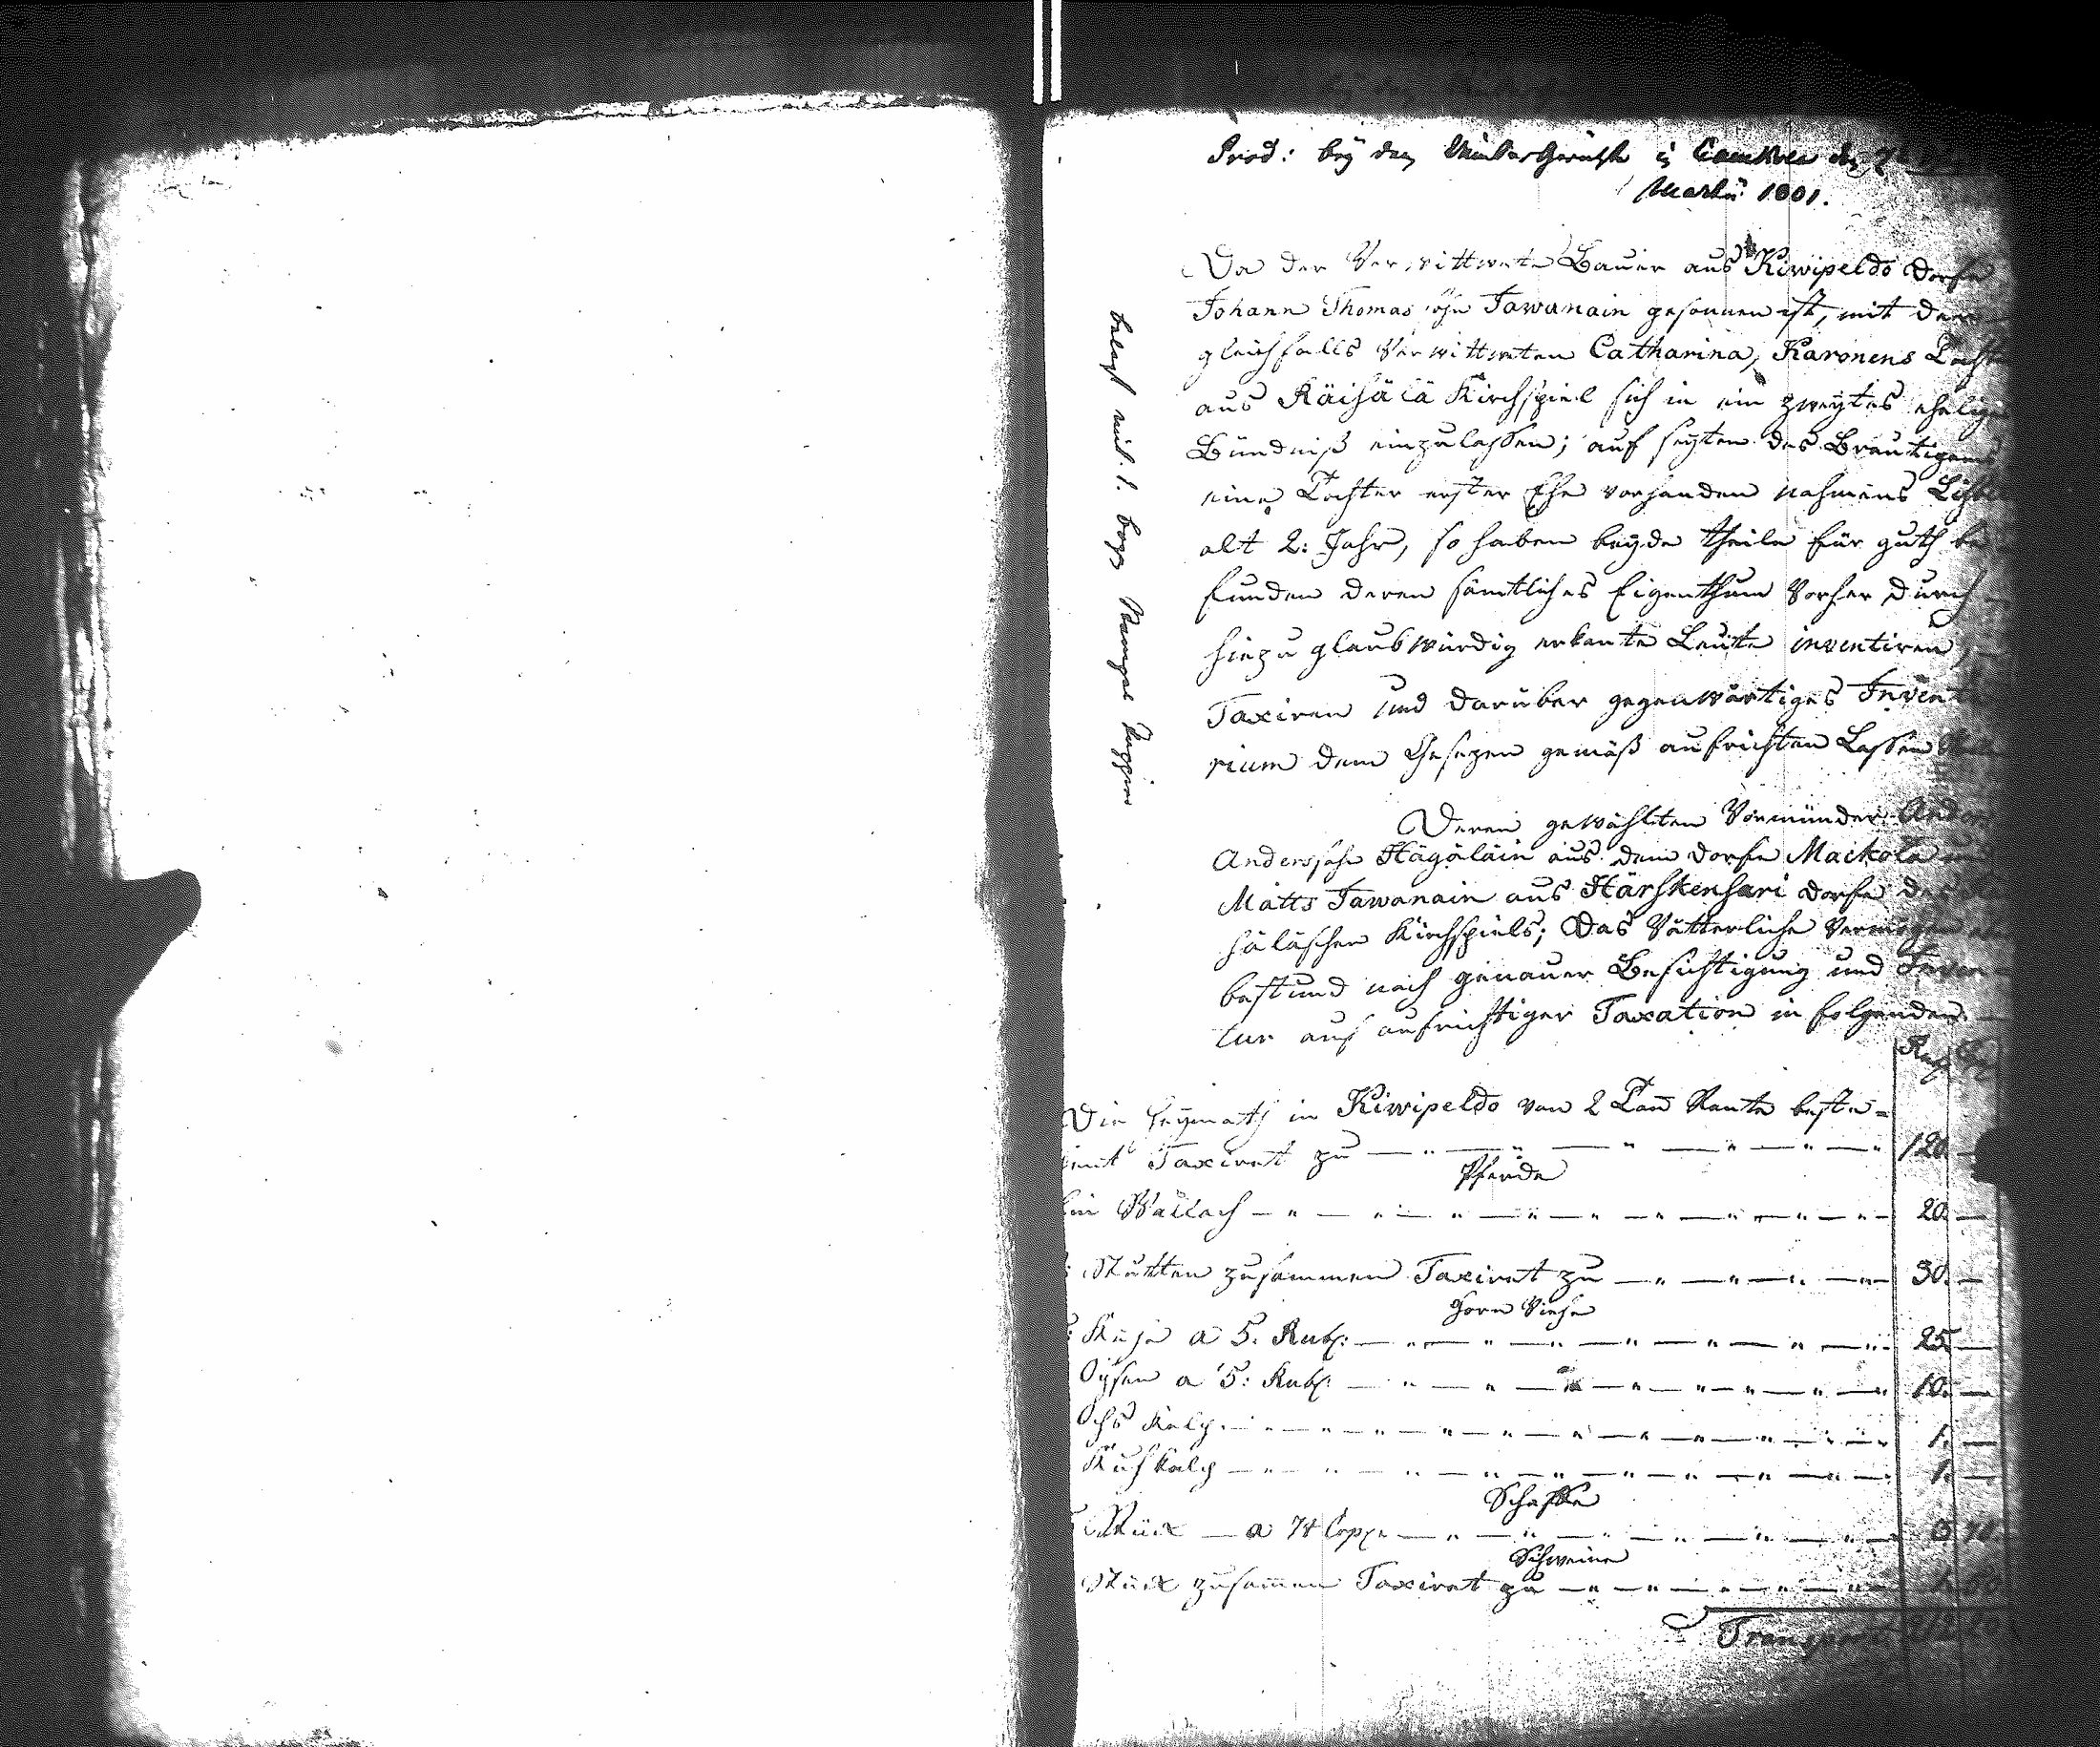 Prod: bey dem Winter Gerichte in den 7
Martii 1801.
Da der Verwittwete Bauer aus Kiwipeldo Dorfe
Johann Thomas sohn Tawanain gesonnen ist, mit der
gleichfalls Verwittweten Catharina, Karonens Tocht
aus Räisälä Kirchspiel sich in ein zweytes ehelige
Bündniß einzulassen; auf seyten des Bräutigams
eine Tochter erster Ehe vorhanden nahmens
alt 2: Jahr, so haben beyde theile für guth be
funden deren sämtliches Eigenthum Vorher durch
hiezu glaubwürdig erkante Leute inventiren,
Taxiren und darüber gegenwärtiges Invent
rium dem Gesezen gemäß aufrichten Lassen
Deren gewählten Vormünder Anders
Anderssohn Hägäläin aus dem Dorfe Mackola und
Matts Tawanain aus Härskensari Dorfe des
säläschen Kirchspiels; Das Vätterliche Vermögen
bestund nach genauer Besichtigung und Inven
tur auf aufrichtiger Taxation in folgenden
Die Heymath in Kiwipeldo von 2 Rente beste=
hent Taxiret zu 120.
Pferde
Ein Wallach 20.
Stutten zusammen Taxiret zu 30.
Horn Viehe
Kühe a 5. Rub: 25
Oxsen a 5: Rub: 10.
Ochs Kalb 1.
Kuh Kalb 1.
Schaffe
Stück a 74 Cop:
Schweine
Stück zusammen Taxiret zu 1. 50
Transport 212 20
belagt mit 1. bogen Stempel Pappier